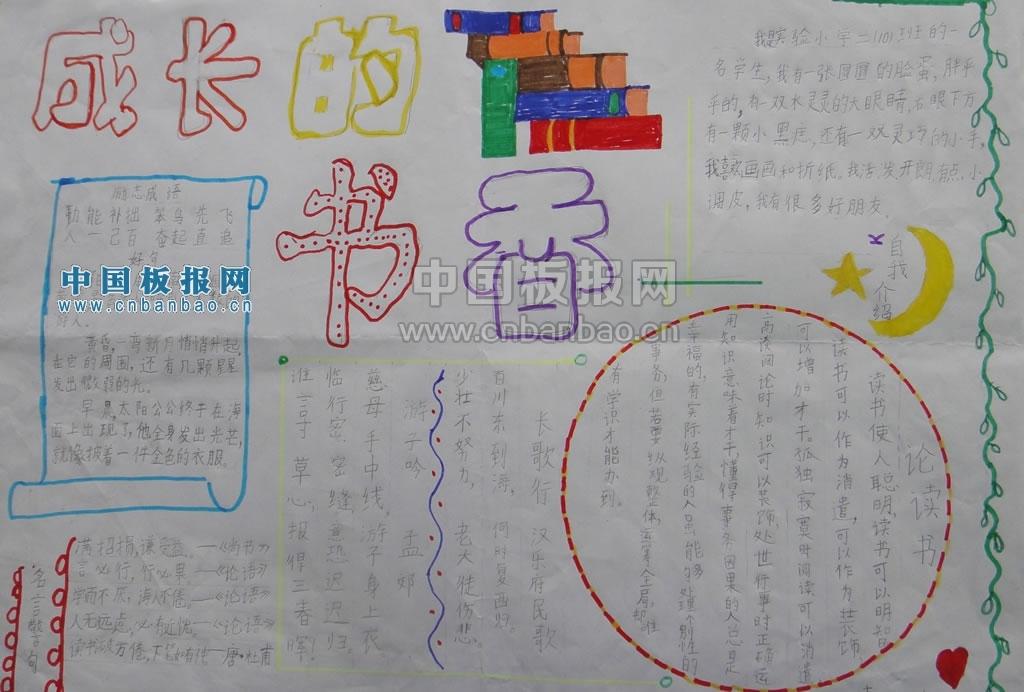 成长的
书香
我是实验小学二(10)班的一
名学生,我有一张圆圆的脸蛋,胖乎
乎的,有一双水灵灵的大眼睛,右眼下方
有一颗小黑痣,还有一双灵巧的小手,
我喜欢画画和折纸,我活泼开朗有点小
调皮,我有很多好朋友。
自我介绍
励志成语
勤能补拙 笨鸟先飞
人一己百 奋起直追
好句
中国板报网
www.cnbanbao.cn
黄昏,一弯新月悄悄升起,
在它的周围,还有几颗星星
发出微弱的光。
早晨,太阳公公终于在海
面上出现了,他全身发出光芒,
就像披着一件金色的衣服。
中国板报网
www.cnbanbao.cn
长歌行 汉乐府民歌
百川东到海, 何时复西归。
少壮不努力, 老大徒伤悲。
游子吟 孟郊
慈母手中线,游子身上衣
临行密密缝,意恐迟迟归。
谁言寸草心,报得三春晖!
论读书
读书使人聪明,读书可以明智
读书可以作为消遣,可以作为装饰,
可以增加才干。孤独寂寞时阅读可以消遣
高谈阔论时知识可以装饰,处世行事时正确运
用知识意味着才干,懂得事务因果的人总是
幸福的,有实际经验的人虽能多处理个别性的
事务,但若要纵观整体,运筹全局,却唯
有学识才能办到。
名言警句
满招损,谦受益。——《尚书》
言必行,行必果。——《论语》
学而不厌,诲人不倦。——《论语》
人无远虑,必有近忧。——《论语》
读书破万卷,下笔如有神—唐·杜甫